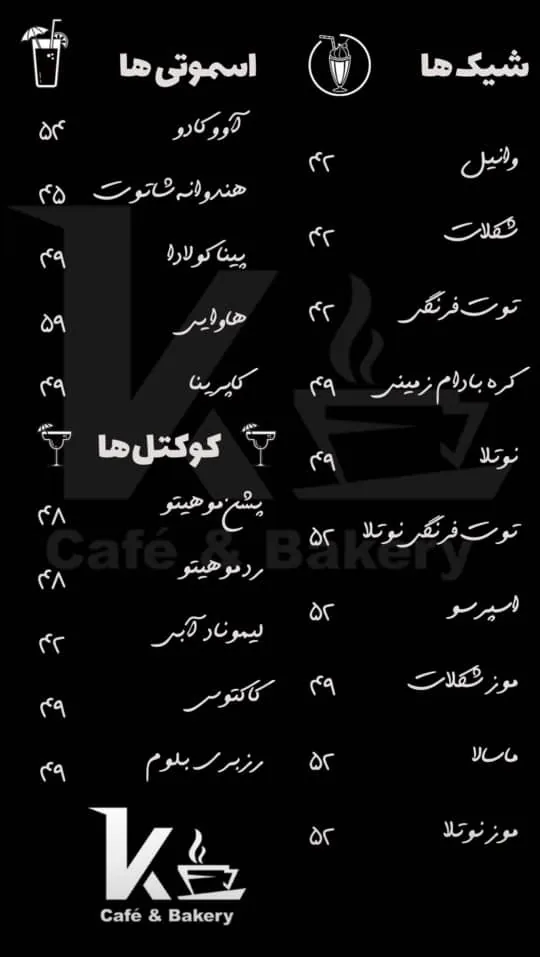 شیک‌ها
وانیل ۴۲
شکلات ۴۲
توت فرنگی ۴۲
کره بادام زمینی ۴۹
نوتلا ۴۹
توت فرنگی نوتلا ۵۲
اسپرسو ۵۲
موز شکلات ۴۹
ماسالا ۵۲
موز نوتلا ۵۲
اسموتی‌ها
آووکادو ۵۴
هندوانه شاتوت ۴۵
پیناکولادا ۴۹
هاوایی ۵۹
کاپرینا ۴۹
کوکتل‌ها
پشن موهیتو ۴۸
رد موهیتو ۴۸
لیموناد آبی ۴۲
کاکتوس ۴۹
رزبری بلوم ۴۹
K
Café & Bakery
K
Café & Bakery